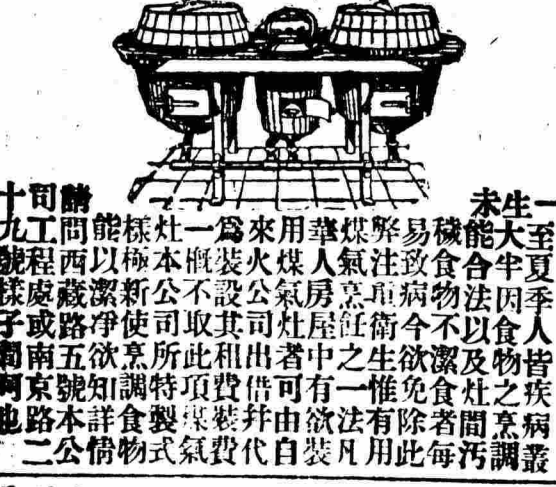 一至夏季人皆疾病叢
生大半因食物之烹調
未能合法以及灶間汚
穢食物不潔食者每
易致病今欲免除此
弊注重衛生惟有用
煤氣烹飪之一法凡
華人房屋中有欲裝
用煤氣灶者可由自
來火公司出借幷代
爲裝設其租費裝費
一概不取此項煤氣
灶本公司所特製式
樣極新使烹調食物
能以潔凈欲知詳情
請問西藏路五號本公
司工程處或南京路二
十九號樣子間也